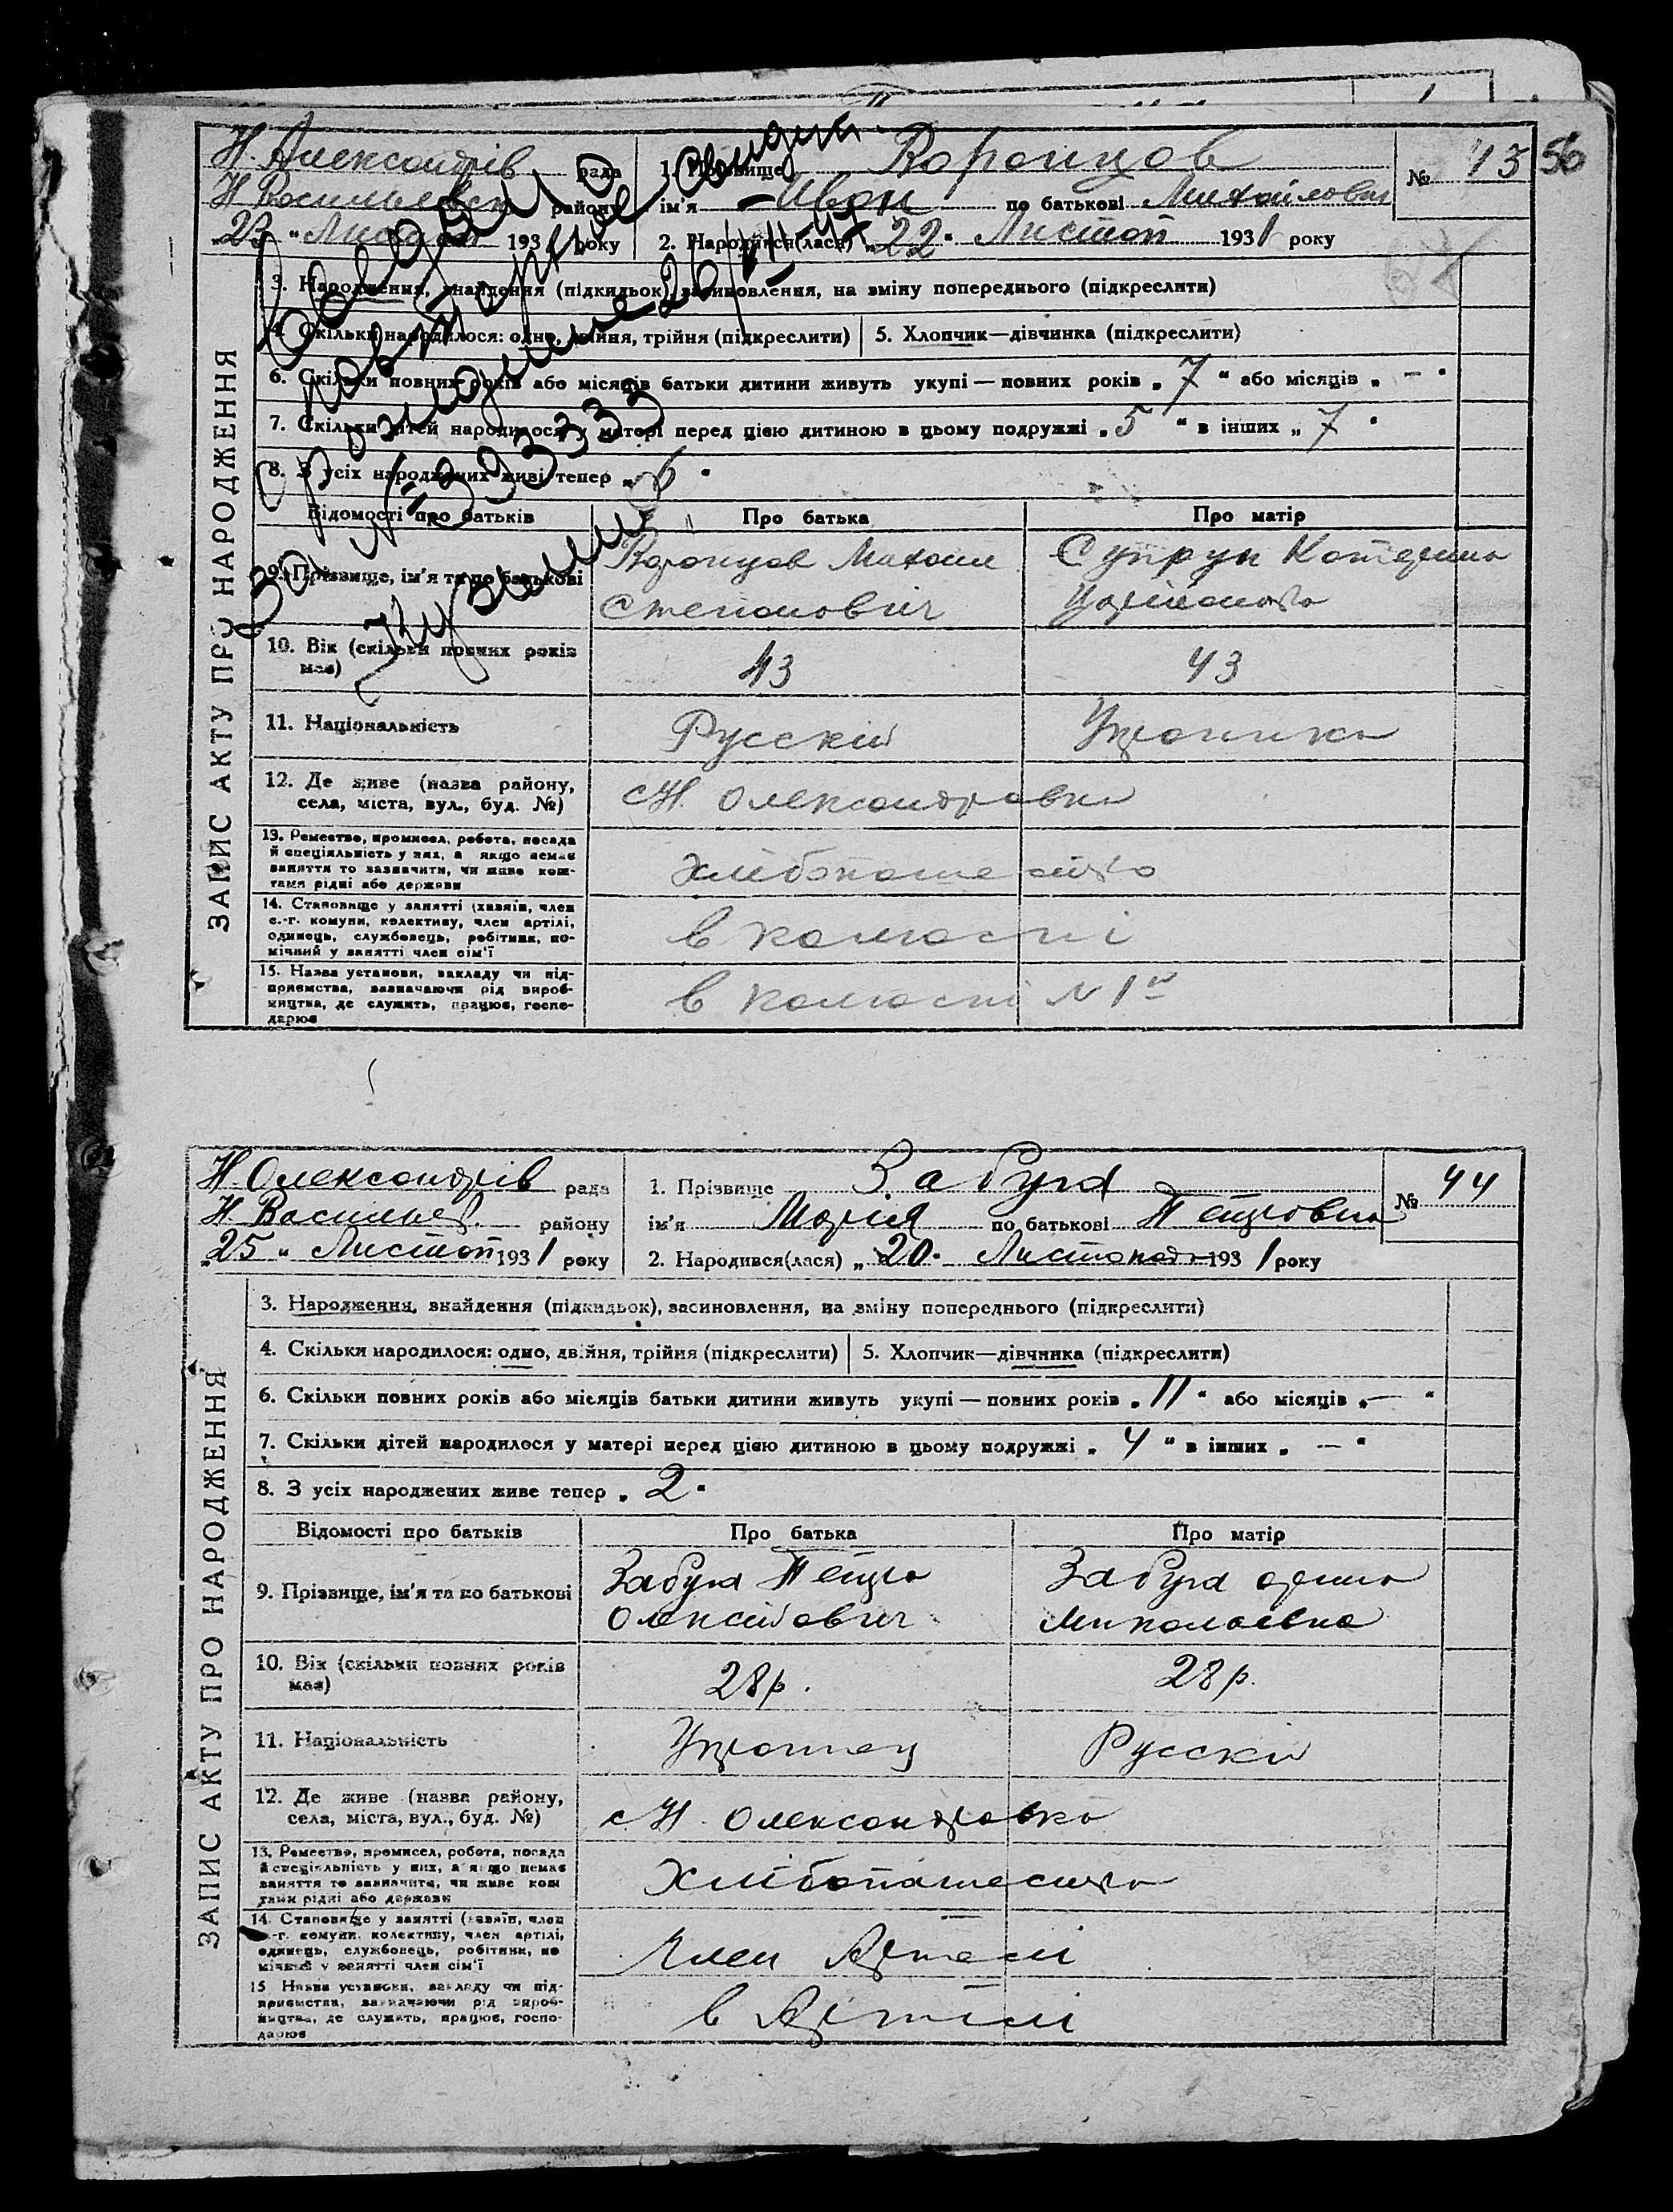 56
Н. Александрів рада
Н Васильевск району
"23" Листоп 1931 року
1. Прізвище Воронцов
ім'я Иван по батькові Михайлович
2. Народився(лася) "22" Листоп 1931 року
№ 43
ЗАПИС АКТУ ПРО НАРОДЖЕННЯ
3. Народження, знайдення (підкидьок), засиновлення, на зміну попереднього (підкреслити)
4. Скільки народилося: одно, двійня, трійня (підкреслити)
5. Хлопчик—дівчинка (підкреслити)
6. Скільки повних років або місяців батьки дитини живуть укупі — повних років „7" або місяців „—"
7. Скільки дітей народилося у матері перед цією дитиною в цьому подружжі „5" в інших „7"
8. З усіх народжених живі тепер „6"
Відомості про батьків Про батька Про матір
9. Прізвище, ім'я та по батькові
Воронцов Михаил
Степанович
Супрун Катерина
10. Вік (скільки повних років має) 43 43
11. Національність Русский Украинка
12. Де живе (назва району,
села, міста, вул., буд. №) с Н. Олександровка
13. Ремество, промисел, робота, посада
й спеціяльність у них, а якщо немає
заняття то зазначити, чи живе кош-
тами рідні або держави
Хлібопашество
14. Становище у занятті (хазяїн, член
с.-г. комуни, колективу, член артілі,
одинець, службовець, робітник, по-
мічний у занятті член сім'ї
в колгоспі
15. Назва установи, закладу чи під-
приємства, зазначаючи рід вироб-
ництва, де служить, працює, госпо-
дарює
в колгоспі N 1
повторное свидет
о рождении 26/VII-47
за № 393333
Н Олександрів рада
Н Васильев. району
"25" Листоп 1931 року
1. Прізвище Забуга
ім'я Марія по батькові Петровна
2. Народився(лася) „20" Листопада 1931 року
№ 44
ЗАПИС АКТУ ПРО НАРОДЖЕННЯ
3. Народження, знайдення (підкидьок), засиновлення, на зміну попереднього (підкреслити)
4. Скільки народилося: одно, двійня, трійня (підкреслити)
5. Хлопчик—дівчинка (підкреслити)
6. Скільки повних років або місяців батьки дитини живуть укупі — повних років „11" або місяців „—"
7. Скільки дітей народилося у матері перед цією дитиною в цьому подружжі „4" в інших „—"
8. З усіх народжених живе тепер „2"
Відомості про батьків Про батька Про матір
9. Прізвище, ім'я та по батькові
Забуга Петро
Олексійович
Забуга
Миколаївна
10. Вік (скільки повних років має) 28 р. 28 р.
11. Національність Украинец Русскій
12. Де живе (назва району,
села, міста, вул., буд. №) с. Н. Олександровка
13. Ремество, промисел, робота, посада
й спеціяльність у них, а якщо немає
заняття то зазначити, чи живе кош
тами рідні або держави
Хлібопашество
14. Становище у занятті (хазяїн, член
с.-г. комуни, колективу, член артілі,
одинець, службовець, робітник, по
мічний у занятті член сім'ї
Член Артелі
15 Назва установи, закладу чи під-
приємства, зазначаючи рід вироб-
ництва, де служить, працює, госпо-
дарює
в Артілі